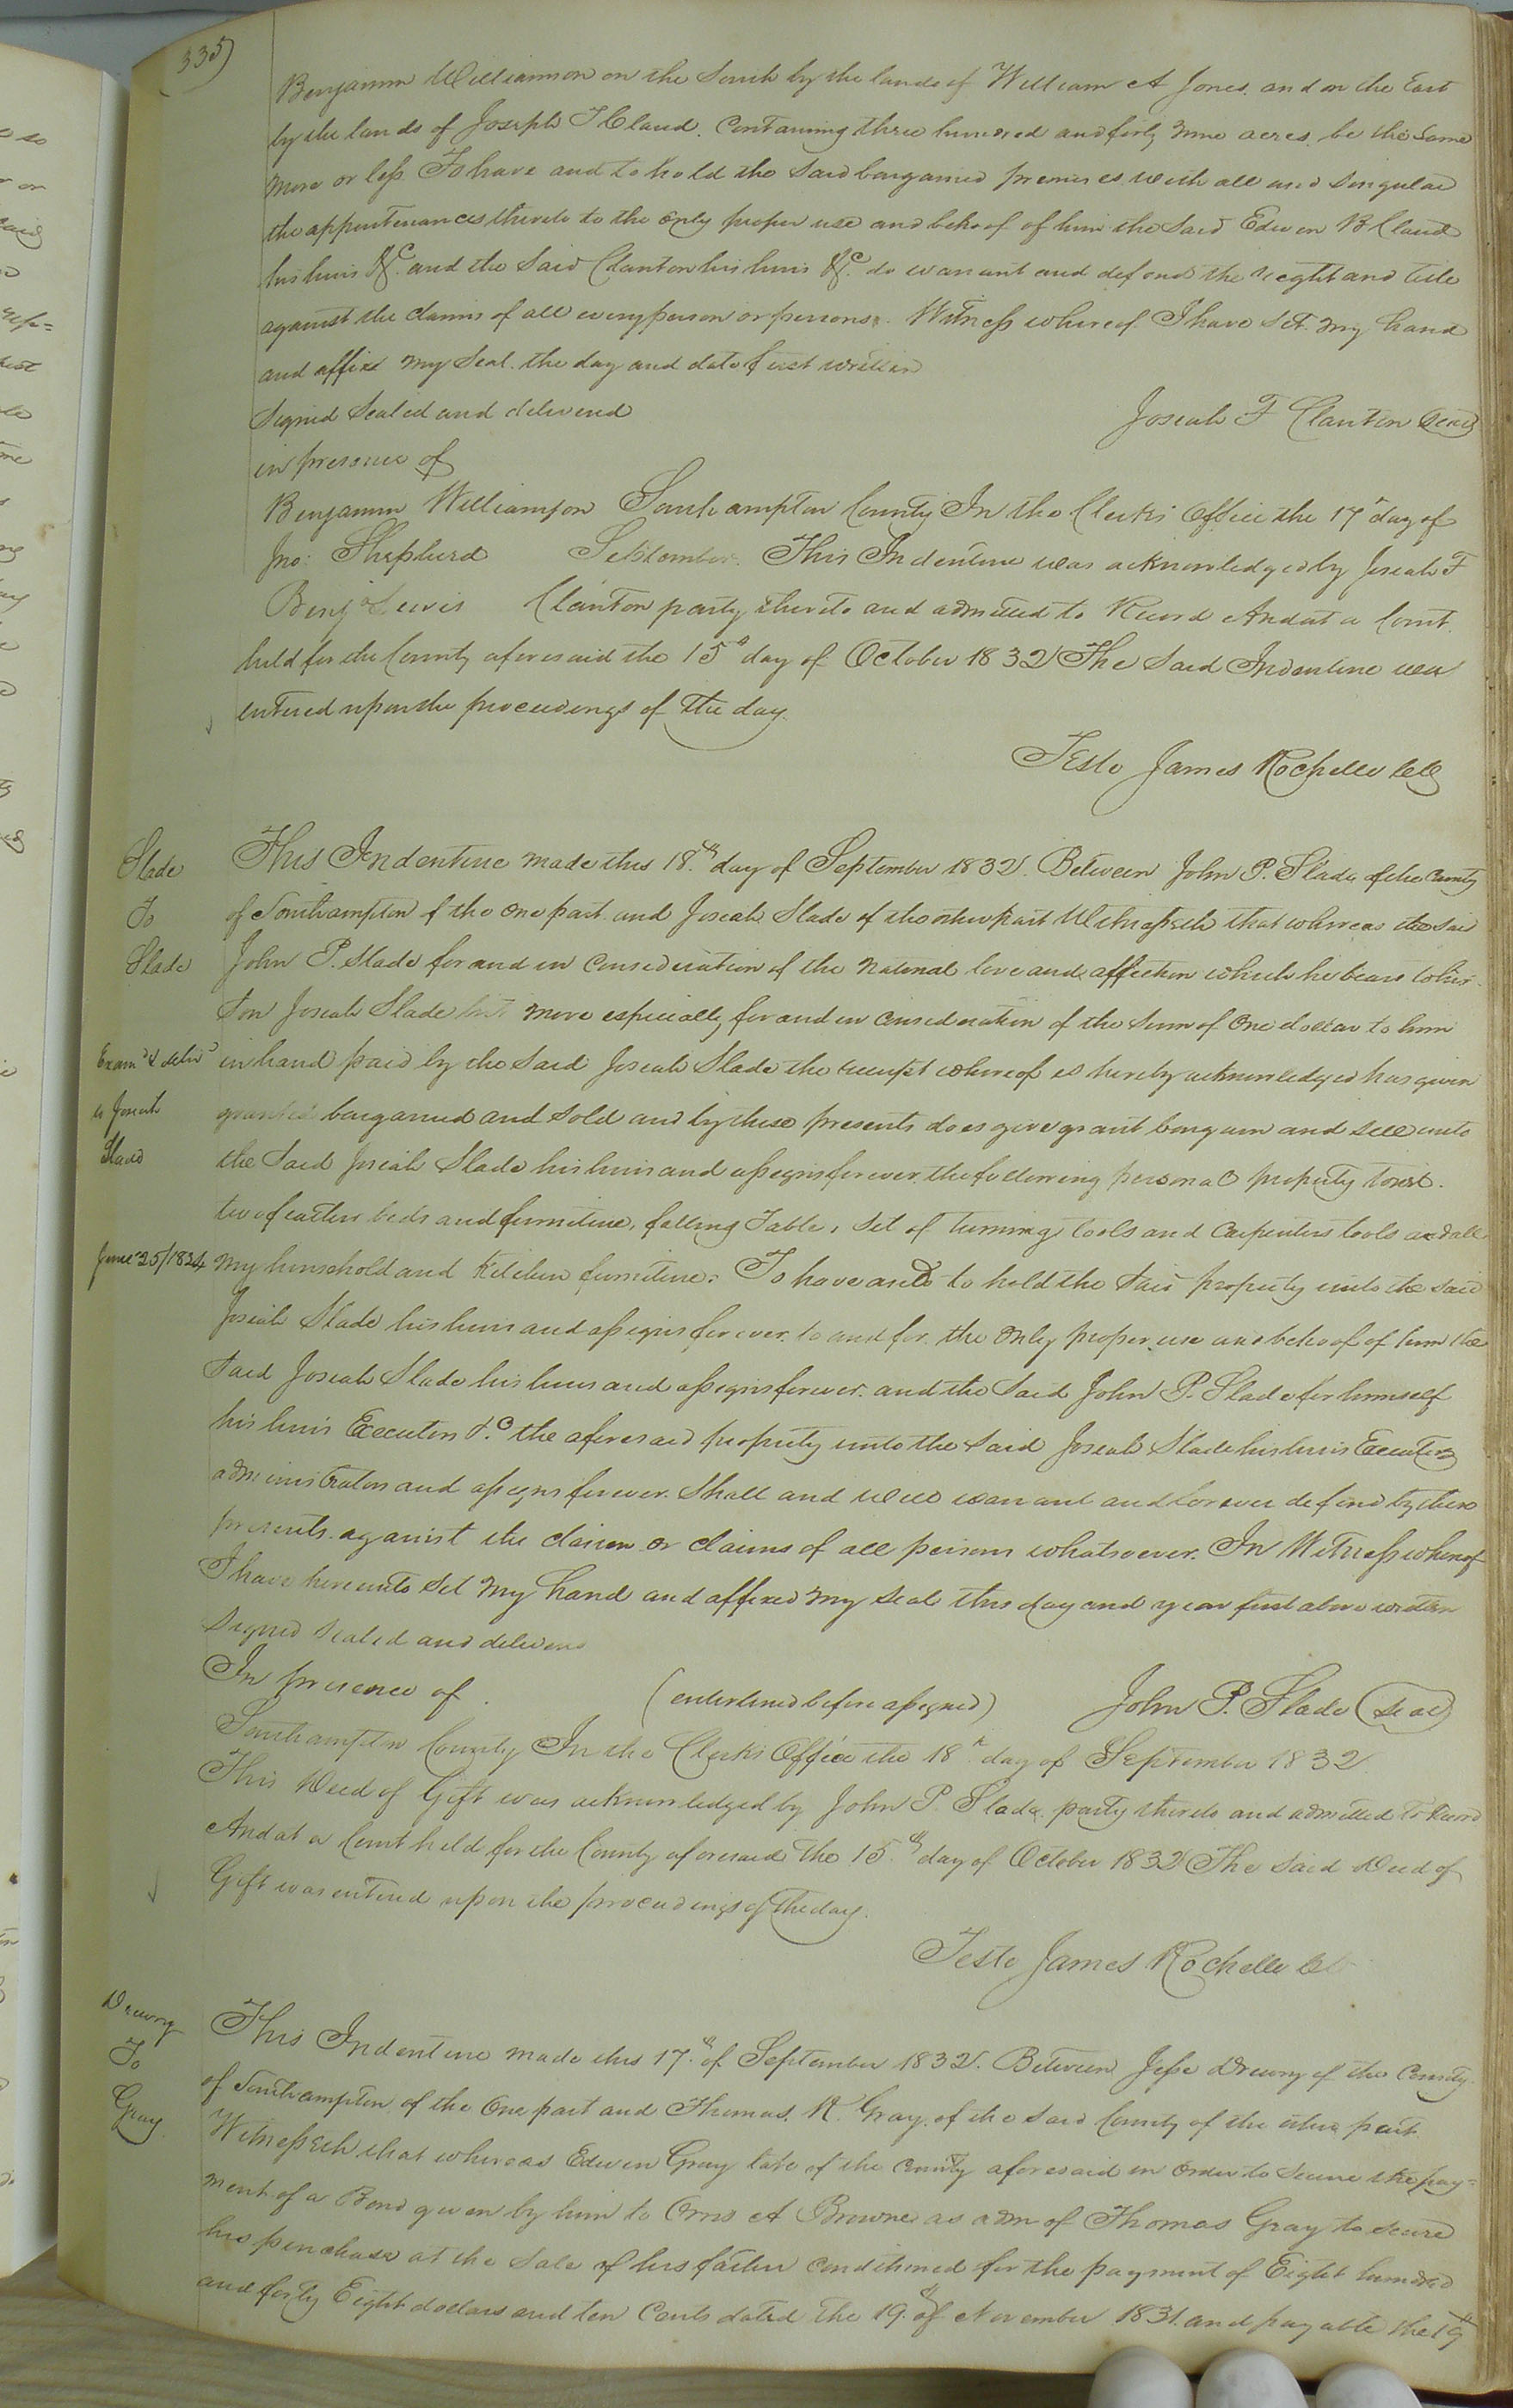 335)
Benjamin Williamson on the South by the lands of William A Jones. and on the East
by the lands of Joseph T Claud. Containing three hundred and forty nine acres. be the same
more or less To have and to hold the said bargained premises with all and singular
the appurtenances thereto to the only proper use and behoof of him the said Edwin B Claud
his heirs &c. and the said Clanton his heirs &c. do warrant and defend the right and title
against the claims of all every person or persons. Witness whereof I have set my hand
and affixd my Seal. the day and date first written
Signed Sealed and delivered
Josiah F Clanton Seal
in presence of
Benjamin Williamson Southampton County In the Clerks Office the 17th day of
Jno: Shepherd September. This Indenture was acknowledged by Josiah F
Benja Lewis Clanton party thereto and admitted to Record And at a Court
held for the County aforesaid the 15th day of October 1832 The said Indenture was
entered upon the proceedings of the day.
Teste James Rochelle Clk
Slade
To
Slade
This Indenture made this 18th day of September 1832. Between John P. Slade of the County
of Southampton of the one part and Josiah Slade of the other part Witnesseth that whereas the said
John P. Slade for and in consideration of the natural love and affection which he bears to his
son Josiah Slade but more especially for and in consideration of the sum of One dollar to him
Examd & delivd
to Josiah
Slade
June 25/1834
in hand paid by the said Josiah Slade the receipt whereof is hereby acknowledged has given
granted bargained and sold and by these presents does give grant bargain and sell unto
the said Josiah Slade his heirs and assigns forever. the following personal property towit.
two feather beds and furniture, falling Table, set of turning tools and Carpenters tools and all
my household and Kitchen furniture. To have and to hold the said property unto the said
Josiah Slade his heirs and assigns forever. to and for the only proper use and behoof of him the
said Josiah Slade his heirs and assigns forever. and the said John P. Slade for himself
his heirs Executors &c the aforesaid property unto the said Josiah Slade his heirs Executors
administrators and assigns forever. Shall and will warrant and forever defend by these
presents. against the claim or claims of all persons whatsoever. In Witness whereof
I have hereunto set my hand and affixed my seal this day and year first above written
Signed sealed and delivered
In presence of (enterlined before assigned) John P. Slade (Seal)
Southampton County In the Clerks Office the 18th day of September 1832
This Deed of Gift was acknowledged by John P. Slade. party thereto and admitted to Record
And at a Court held for the County aforesaid The 15th day of October 1832 The said Deed of
Gift was entered upon the proceedings of the day.
Teste James Rochelle Clk
Drewry
To
Gray
This Indenture made this 17th of September 1832. Between Jesse Drewry of the County
of Southampton of the One part and Thomas. R. Gray. of the said County of the other part
Witnesseth that whereas Edwin Gray late of the County aforesaid in order to secure the pay=
ment of a Bond given by him to Orris A Browne as adm of Thomas Gray to secure
his purchase at the sale of his father conditioned for the payment of Eight hundred
and forty Eight dollars and ten Cents dated the 19th of November 1831. and payable the 19th